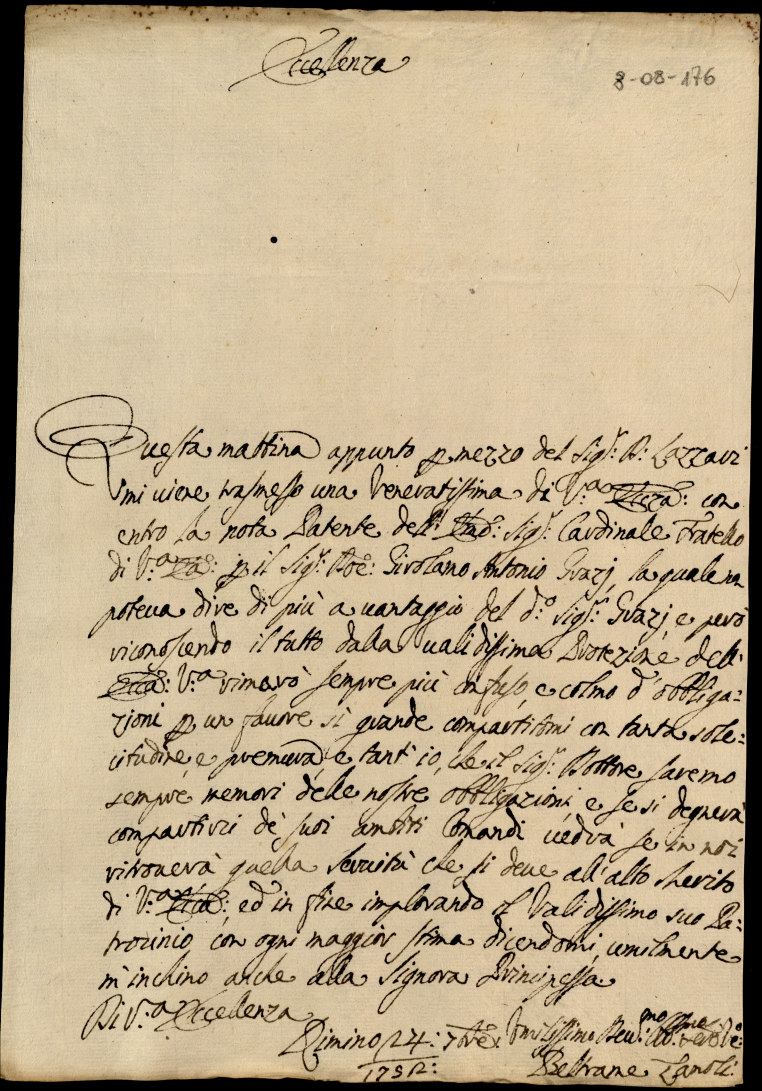 Eccellenza
8-08-176
Questa mattina appunto p mezzo del Sig.r D: Lazzari
mi viene trasmesso una Veneratissima di V.a Ecczà: con
entro la nota Patente dell' Emo: Sig.r Cardinale Fratello
di V.a Eza: p il Sig.r Girolamo Antonio la quale nō
poteva dire di più a vantaggio del d.o Sig.r e però
riconoscendo il tutto dalla validissima Protezione dell'
Eccza: V.a rimarò sempre più confuso, e colmo d'obbliga=
zioni p un favore sì grande compartitomi con tanta sole=
citudine, e premura, e tant' io, che il Sig.r Dottore saremo
sempre memori delle nostre obbligazioni, e se si degnerà
compartirci de' suoi ambiti Comandi vedrà se in noi
ritroverà quella Servitù che si deve all'alto Merito
di V.a Ecza: ed in fine implorando il Validissimo suo Pa=
trocinio con ogni maggior stima dicendomi, umilmente
m'inchino anche alla Signora Principessa
Di V.a Eccellenza
Rimino 24: 7bre Umilissimo
1752: Beltrame Zanoli